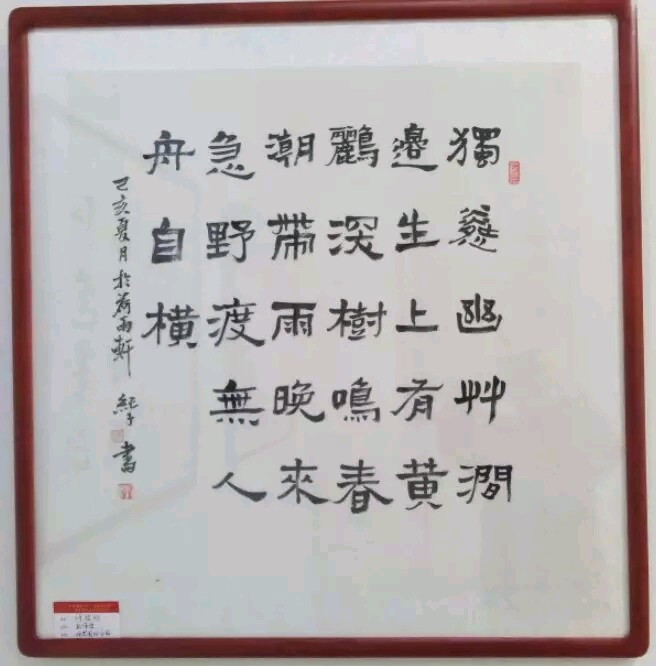 獨怜幽艸澗
邉生上有黃
鸝深樹鳴春
潮帶雨晚來
急野渡無人
舟自橫
己亥夏月於荷雨軒 紀子 書